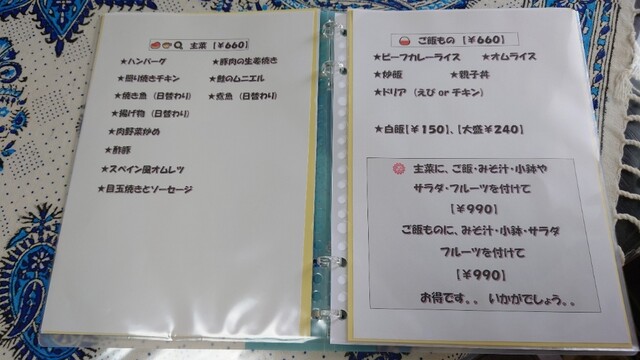 主菜 【￥660】
★ハンバーグ ★豚肉の生姜焼き
★照り焼きチキン ★鮭のムニエル
★焼き魚（日替わり） ★煮魚（日替わり）
★揚げ物（日替わり）
★肉野菜炒め
★酢豚
★スペイン風オムレツ
★目玉焼きとソーセージ
ご飯もの 【￥660】
★ビーフカレーライス ★オムライス
★炒飯 ★親子丼
★ドリア（えび or チキン）
★白飯【￥150】、【大盛￥240】
主菜に、ご飯・みそ汁・小鉢や
サラダ・フルーツを付けて
【￥990】
ご飯ものに、みそ汁・小鉢・サラダ
フルーツを付けて
【￥990】
お得です。。いかがでしょう。。